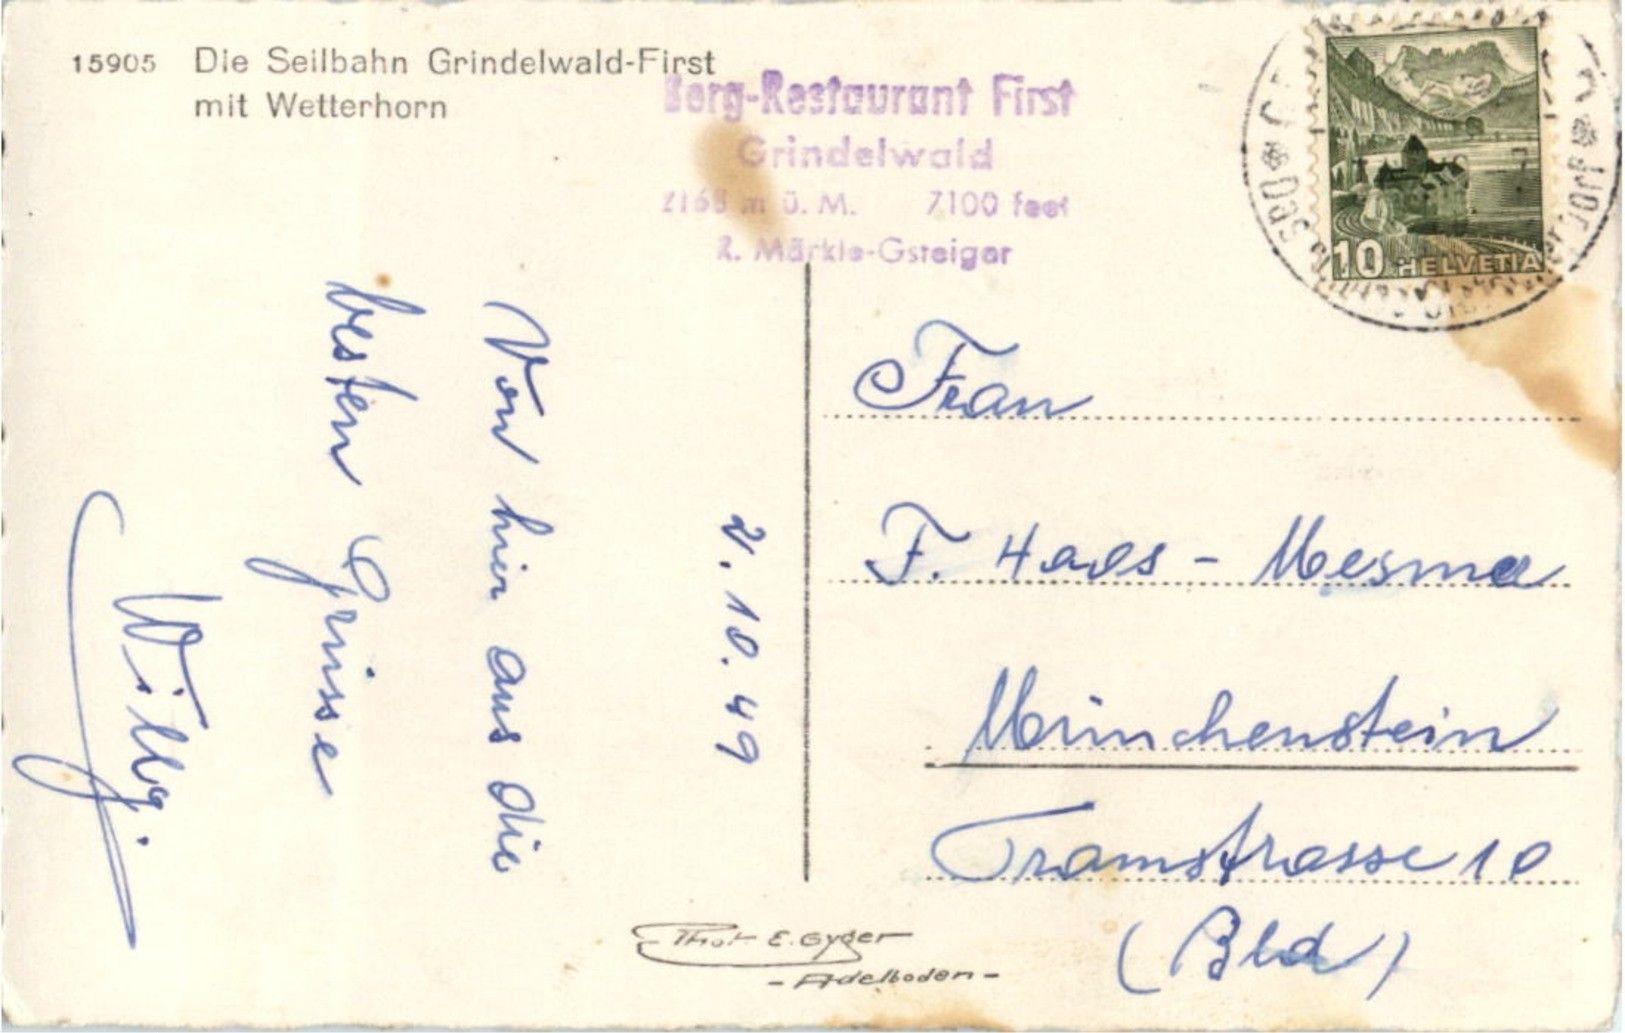 15905 Die Seilbahn Grindelwald-First
mit Wetterhorn
Berg-Restaurant First
Grindelwald
2168 m ü. M. 7100 feet
R. Märkle-Gsteiger
10 HELVETIA
2. 10. 49
Von hier aus die
besten Grüsse
Willy.
Frau
F. Haas - Mesmer
Münchenstein
Tramstrasse 10
(Bld)
Phot E. Gyger
- Adelboden -